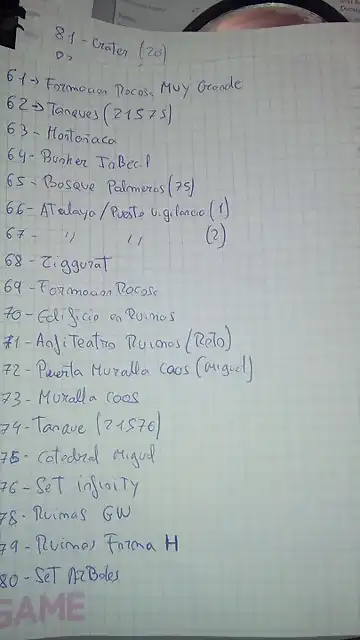 81 - Crater (20)
61 → Formacion Rocosa Muy Grande
62 → Tanques (21575)
63 - Montañaca
64 - Bunker
65 - Bosque Palmeras (75)
66 - Atalaya / Puesto vigilancia (1)
67 - " " (2)
68 - Ziggurat
69 - Formacion Rocosa
70 - Edificio en Ruinas
71 - Anfiteatro Ruinas (Reto)
72 - Puerta Muralla caos (Miguel)
73 - Muralla caos
74 - Tanque (21576)
75 - Catedral Miguel
76 - Set infinity
78 - Ruinas GW
79 - Ruinas Forma H
80 - Set Arboles
GAME